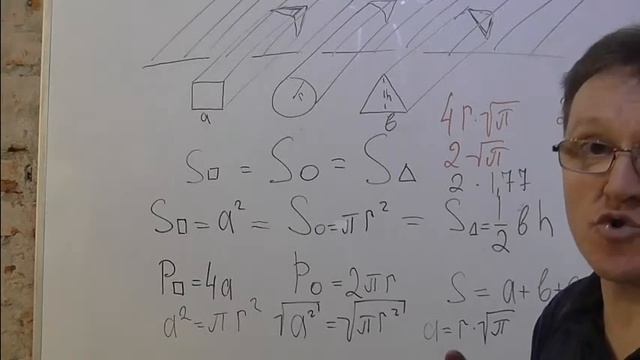 a r h b
4r·√π
2√π
2·1,77
S□ = S○ = S△
S□ = a² = S○ = πr² = S△ = 1/2 bh
P□ = 4a P○ = 2πr S = a + b +
a² = πr² √a² = √πr² a = r·√π